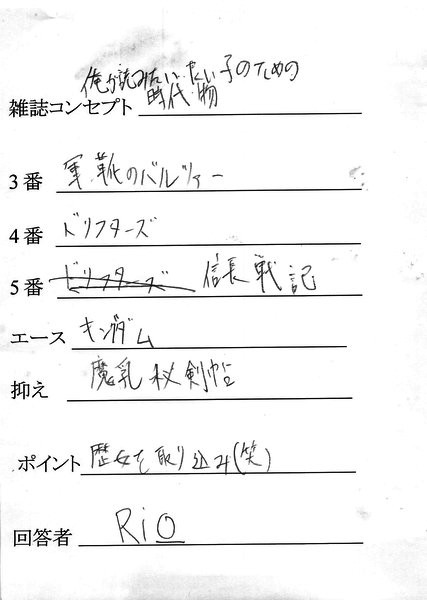 俺が読みたい、たい子のための
雑誌コンセプト 時代物
3番 軍靴のバルツァー
4番 ドリフターズ
5番 ドリフターズ 信長戦記
エース キングダム
抑え 魔乳秘剣帖
ポイント 歴女を取り込み(笑)
回答者 RiO